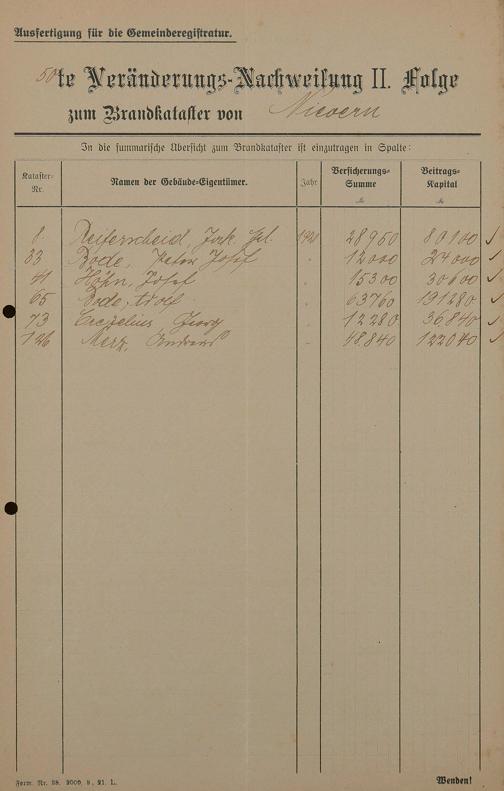 Ausfertigung für die Gemeinderegistratur.
50te Veränderungs-Nachweisung II. Folge
zum Brandkataster von Nievern
In die summarische Übersicht zum Brandkataster ist einzutragen in Spalte:
Kataster-Nr. Namen der Gebäude-Eigentümer. Jahr Versicherungs-Summe M Beitrags-Kapital M
8 Reiferscheid, Jak. 1921 28950 80100 ✓
33 Bode, Peter Josef " 12000 24000 ✓
41 Höhn, Josef " 15300 30600 ✓
65 Bode, Adolf " 63760 191280 ✓
73 Georg " 12280 36840 ✓
126 Merz, Andreas " 48.840 122040 ✓
Form. Nr. 28. 2000. 9. 21. L.
Wenden!